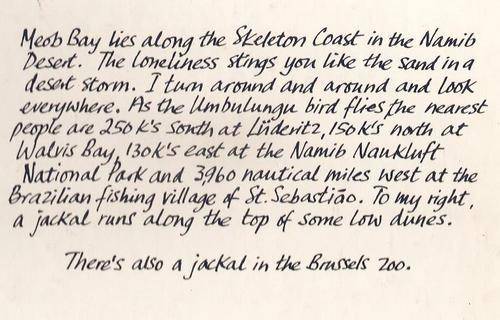 Meob Bay lies along the Skeleton Coast in the Namib
Desert. The loneliness stings you like the sand in a
desert storm. I turn around and around and look
everywhere. As the Umbulungu bird flies, the nearest
people are 250 k's south at Lüderitz, 150 k's north at
Walvis Bay, 130 k's east at the Namib Naukluft
National Park and 3,960 nautical miles west at the
Brazilian fishing village of St. Sebastião. To my right,
a jackal runs along the top of some low dunes.
There's also a jackal in the Brussels Zoo.